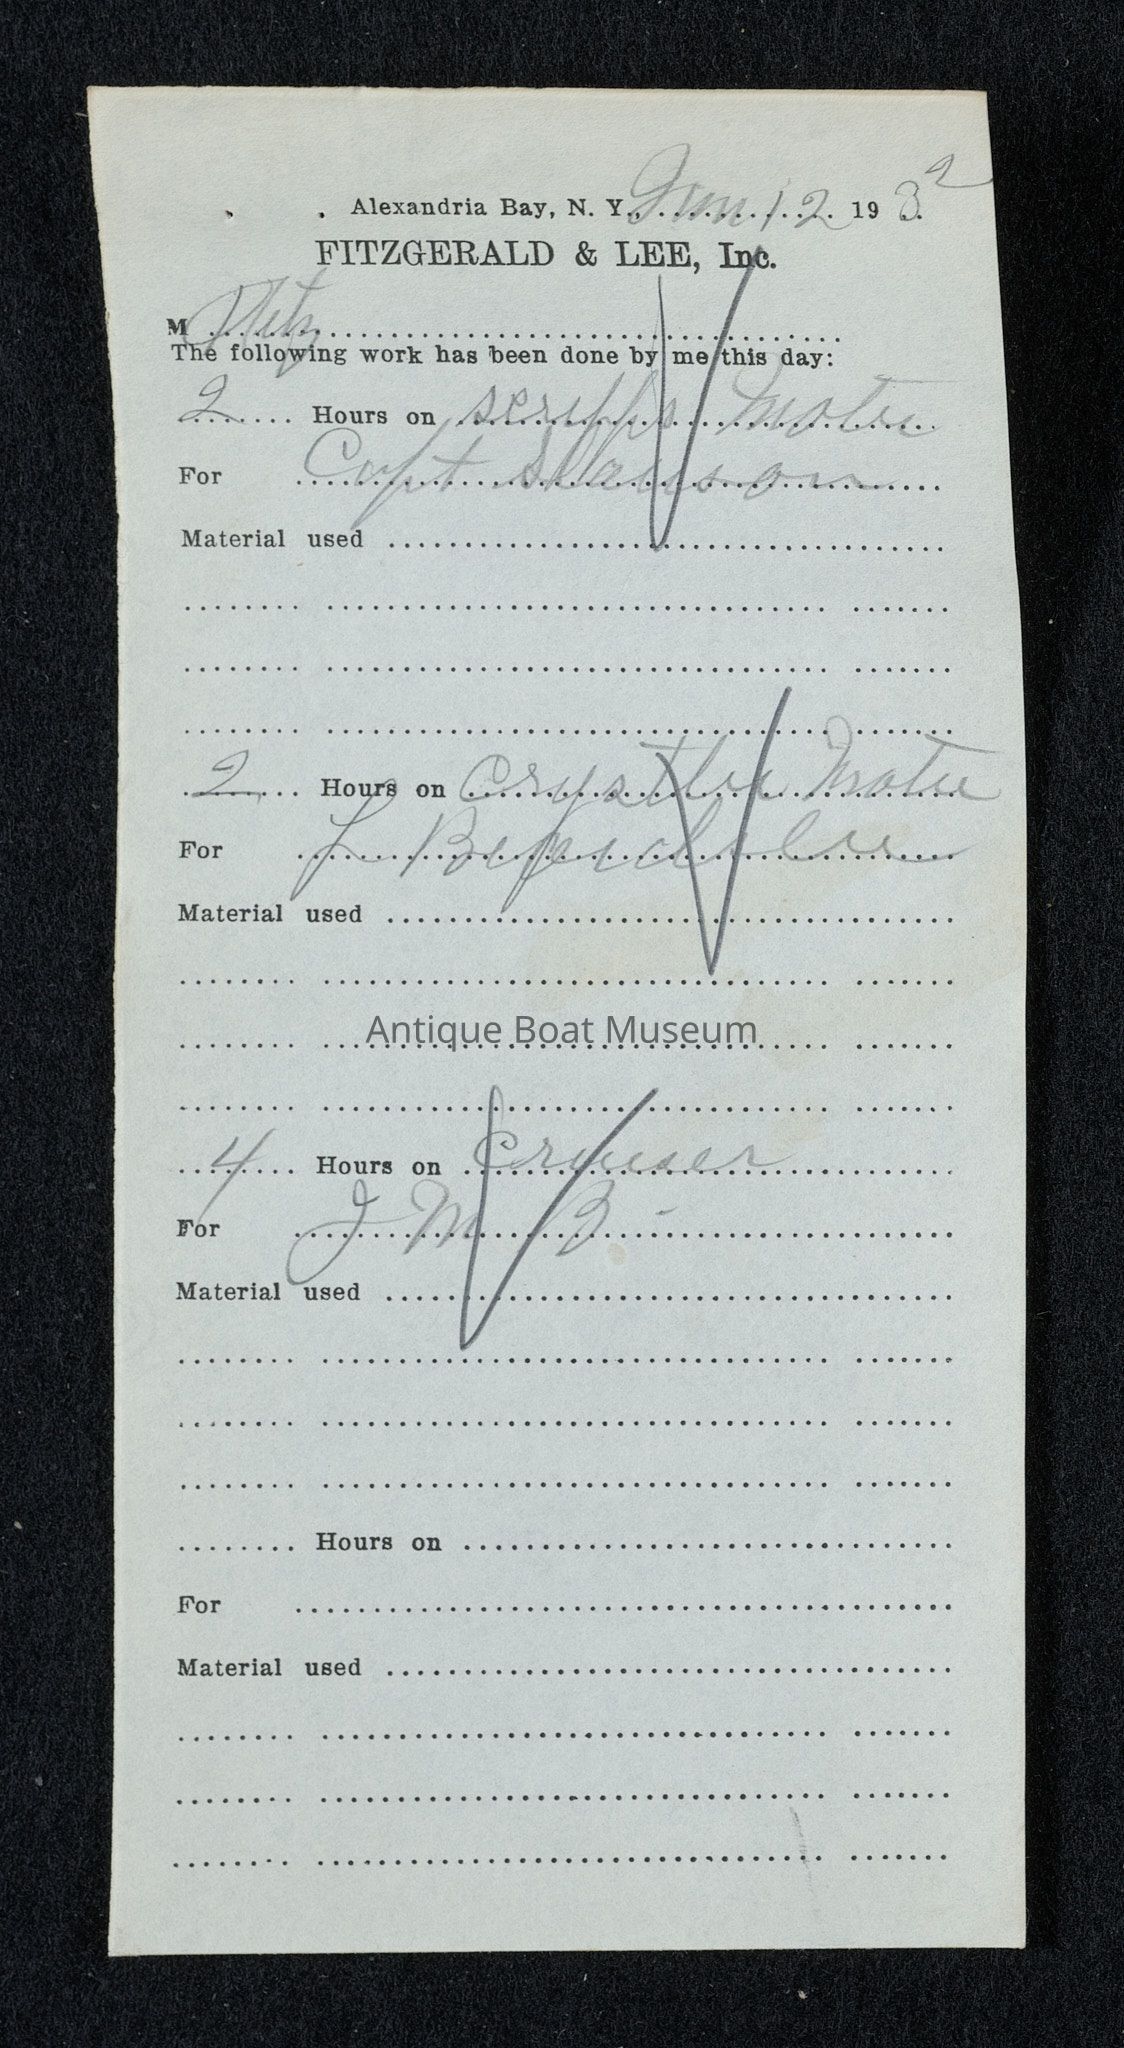 Alexandria Bay, N. Y., Jan 12 1932
FITZGERALD & LEE, Inc.
M
The following work has been done by me this day:
2 Hours on scripps Motor
For Capt Slawson
Material used
2 Hours on Motor
For L
Material used
Antique Boat Museum
4 Hours on Cruiser
For J M B -
Material used
Hours on
For
Material used